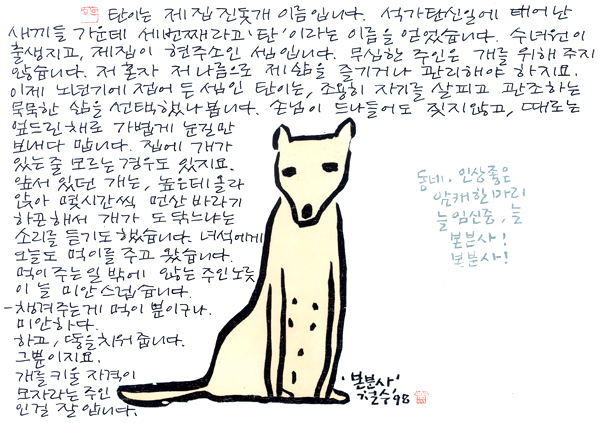 탄이는 제 집 진돗개 이름입니다. 석가탄신일에 태어난
새끼들 가운데 세번째라고 '탄'이라는 이름을 얻었습니다. 수녀원이
출생지고, 제집이 현주소인 셈입니다. 무심한 주인은 개를 위해 주지
않습니다. 저 혼자 저 나름으로 제 삶을 즐기거나 관리해야 하지요.
이제 노년기에 접어 든 셈인 탄이는, 조용히 자기를 살피고 관조하는
묵묵한 삶을 선택했나 봅니다. 손님이 드나들어도 짖지 않고, 때로는
엎드린 채로 가볍게 눈길만
보내다 맙니다. 집에 개가
있는 줄 모르는 경우도 있지요.
앞서 있던 개는, 높은데 올라
앉아 몇시간씩 먼산 바라기
하곤 해서 개가 도 닦느냐는
소리를 듣기도 했습니다. 녀석에게
오늘도 먹이를 주고 왔습니다.
먹이 주는 일 밖에 않는 주인 노릇
이 늘 미안스럽습니다.
- 챙겨주는게 먹이 뿐이구나.
미안하다.
하고, 똥을 치워 줍니다.
그뿐이지요.
개를 키울 자격이
모자라는 주인
인걸 잘 압니다.
동네, 인상좋은
암캐 한마리
늘 임신중, 늘
본분사!
본분사!
'본분사'
'98